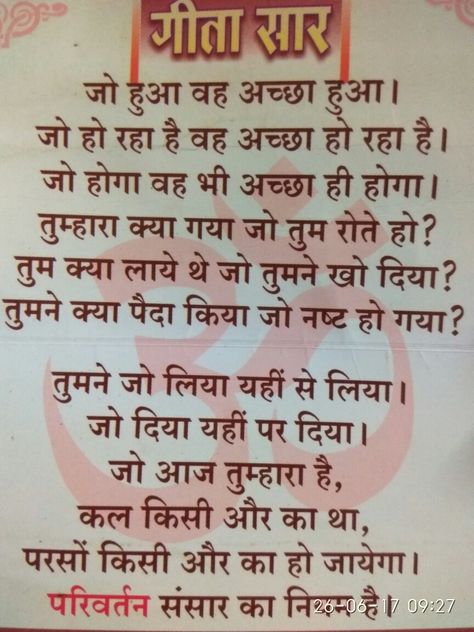 गीता सार
जो हुआ वह अच्छा हुआ।
जो हो रहा है वह अच्छा हो रहा है।
जो होगा वह भी अच्छा ही होगा।
तुम्हारा क्या गया जो तुम रोते हो?
तुम क्या लाये थे जो तुमने खो दिया?
तुमने क्या पैदा किया जो नष्ट हो गया?
तुमने जो लिया यहीं से लिया।
जो दिया यहीं पर दिया।
जो आज तुम्हारा है,
कल किसी और का था,
परसों किसी और का हो जायेगा।
परिवर्तन संसार का नियम है।
26-06-17 09:27